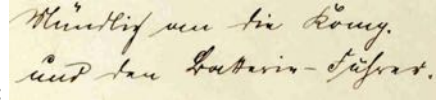 Mündlich an die Komp.
und den Batterie-Führer.